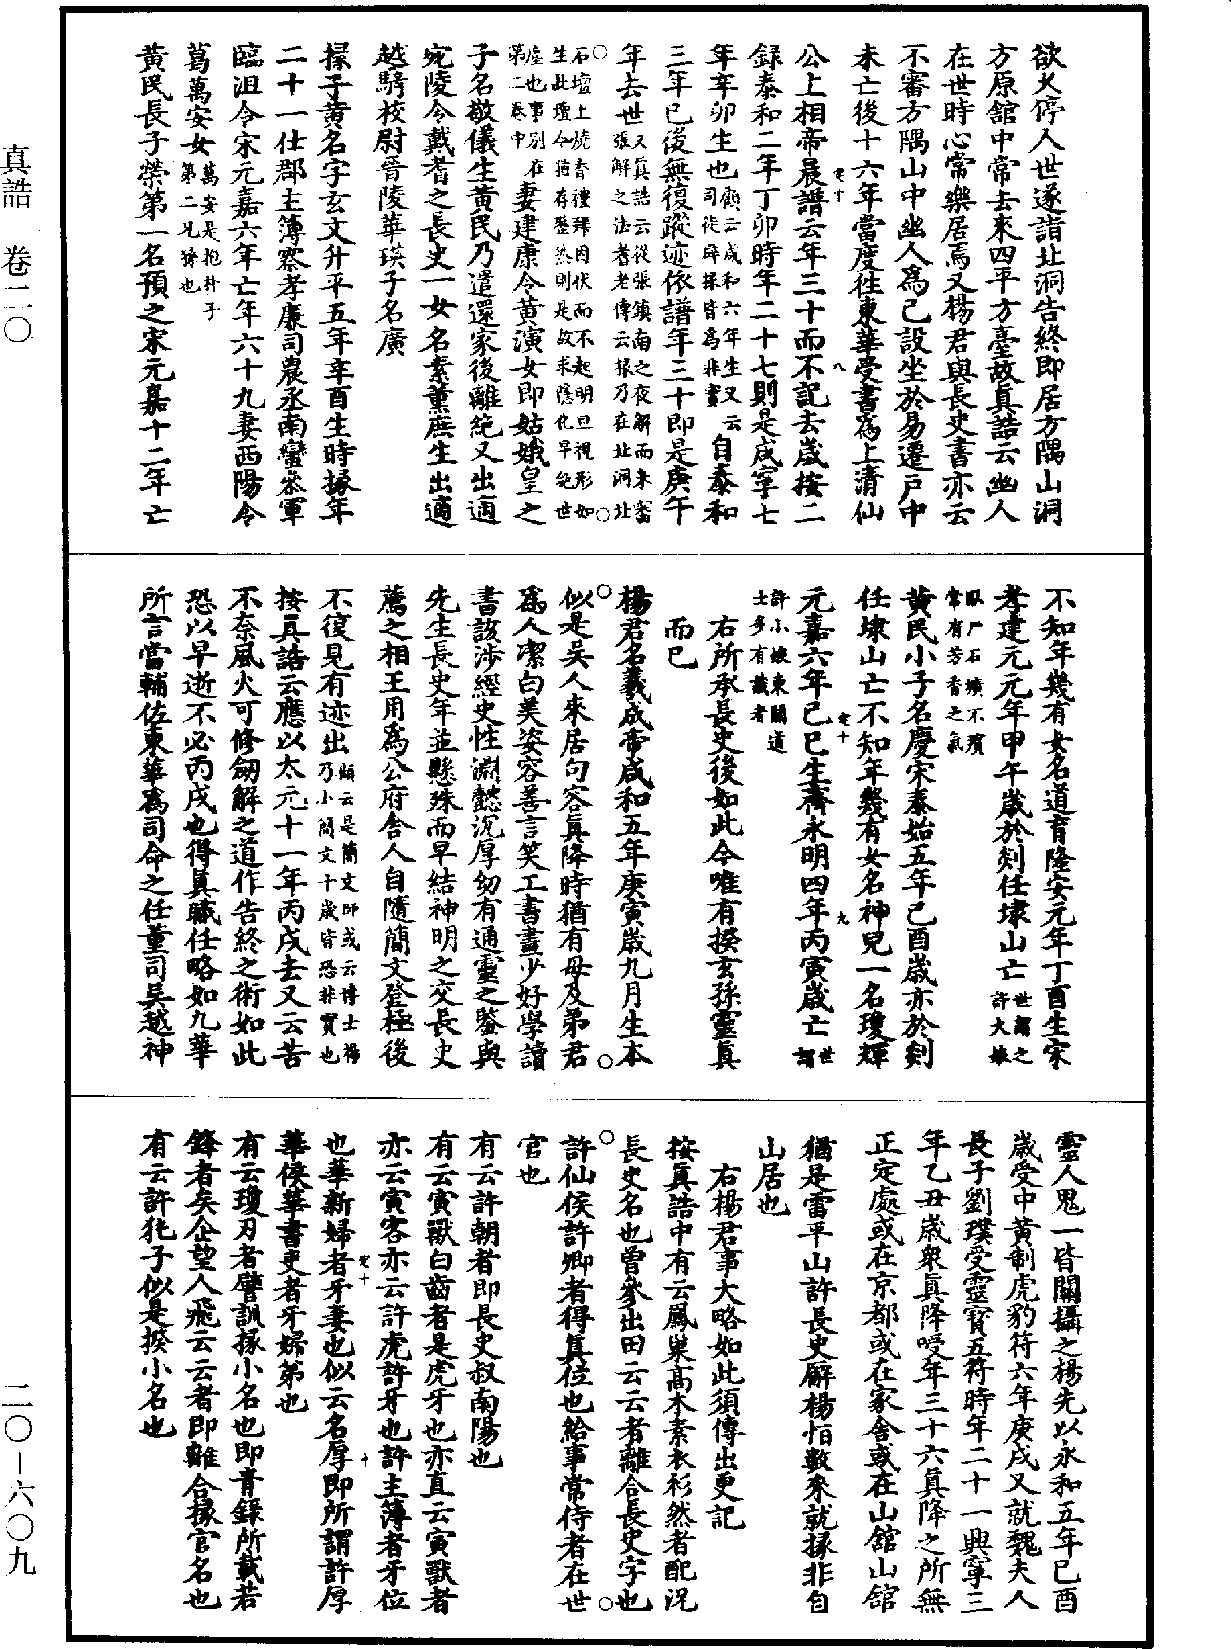 真誥 卷二〇
二〇—六〇九
欲久停人世遂詣北洞告終即居方隅山洞
方原舘中常去來四平方臺故真誥云幽人
在世時心常樂居焉又楊君與長史書亦云
不審方隅山中幽人為已設坐於易遷戶中
未亡後十六年當度往東華受書為上清仙
公上相帝晨譜云年三十而不記去歲按二
錄泰和二年丁卯時年二十七則是咸寧七
年辛卯生也顧云咸和六年生又云司徒辟掾皆為非實自泰和
三年已後無復蹤迹依譜年三十即是庚午
年去世又真誥云從張鎮南之夜解而未審張解之法耆老傳云掾乃在北洞北
石壇上燒香禮拜因伏而不起明旦視形如生此壇今猶存歷然則是故求隱化早絕世
塵也事別在第二卷中妻建康令黃演女即姑娥皇之
子名敬儀生黃民乃遣還家後離絕又出適
宛陵令戴耆之長史一女名素薰庶生出適
越騎校尉晉陵華瑛子名廣
掾子黃名字玄文升平五年辛酉生時掾年
二十一仕郡主簿察孝廉司農丞南蠻叅軍
臨沮令宋元嘉六年亡年六十九妻西陽令
葛萬安女萬安是抱朴子第二兄孫也
黃民長子榮第一名預之宋元嘉十二年亡
不知年幾有女名道育隆安元年丁酉生宋
孝建元元年甲午歲於剡任埭山亡世謂之許大娘
臥尸石壙不殯常有芳香之氣
黃民小子名慶宋泰始五年己酉歲亦於剡
任埭山亡不知年幾有女名神兒一名瓊輝
元嘉六年己巳生齊永明四年丙寅歲亡世謂
許小娘東關道士多有識者
右所承長史後如此今唯有揆玄孫靈真
而已
楊君名羲成帝咸和五年庚寅歲九月生本
似是吳人來居句容真降時猶有母及弟君
為人潔白美姿容善言笑工書畫少好學讀
書該涉經史性淵懿沉厚幼有通靈之鑒與
先生長史年並懸殊而早結神明之交長史
薦之相王用為公府舍人自隨簡文登極後
不復見有迹出顧云是簡文師或云博士楊乃小簡文十歲皆恐非實也
按真誥云應以太元十一年丙戌去又云苦
不奈風火可修劒解之道作告終之術如此
恐以早逝不必丙戌也得真職任略如九華
所言當輔佐東華為司命之任董司吳越神
靈人鬼一皆關攝之楊先以永和五年己酉
歲受中黃制虎豹符六年庚戌又就魏夫人
長子劉璞受靈寶五符時年二十一興寧三
年乙丑歲衆真降受年三十六真降之所無
正定處或在京都或在家舍或在山舘山舘
猶是雷平山許長史廨楊怕數來就掾非自
山居也
右楊君事大略如此須傳出更記
按真誥中有云鳳巢高木素衣衫然者配況
長史名也曾參出田云云者離合長史字也
許仙侯許卿者得真位也給事常侍者在世
官也
有云許朝者即長史叔南陽也
有云寅獸白齒者是虎牙也亦直云寅獸者
亦云寅客亦云許虎許牙也許主簿者牙位
也華新婦者牙妻也似云名厚即所謂許厚
華侯華書吏者牙婦弟也
有云瓊刃者譬訓掾小名也即青錄所載若
鋒者矣企望人飛云云者即離合掾官名也
有云許虬子似是揆小名也